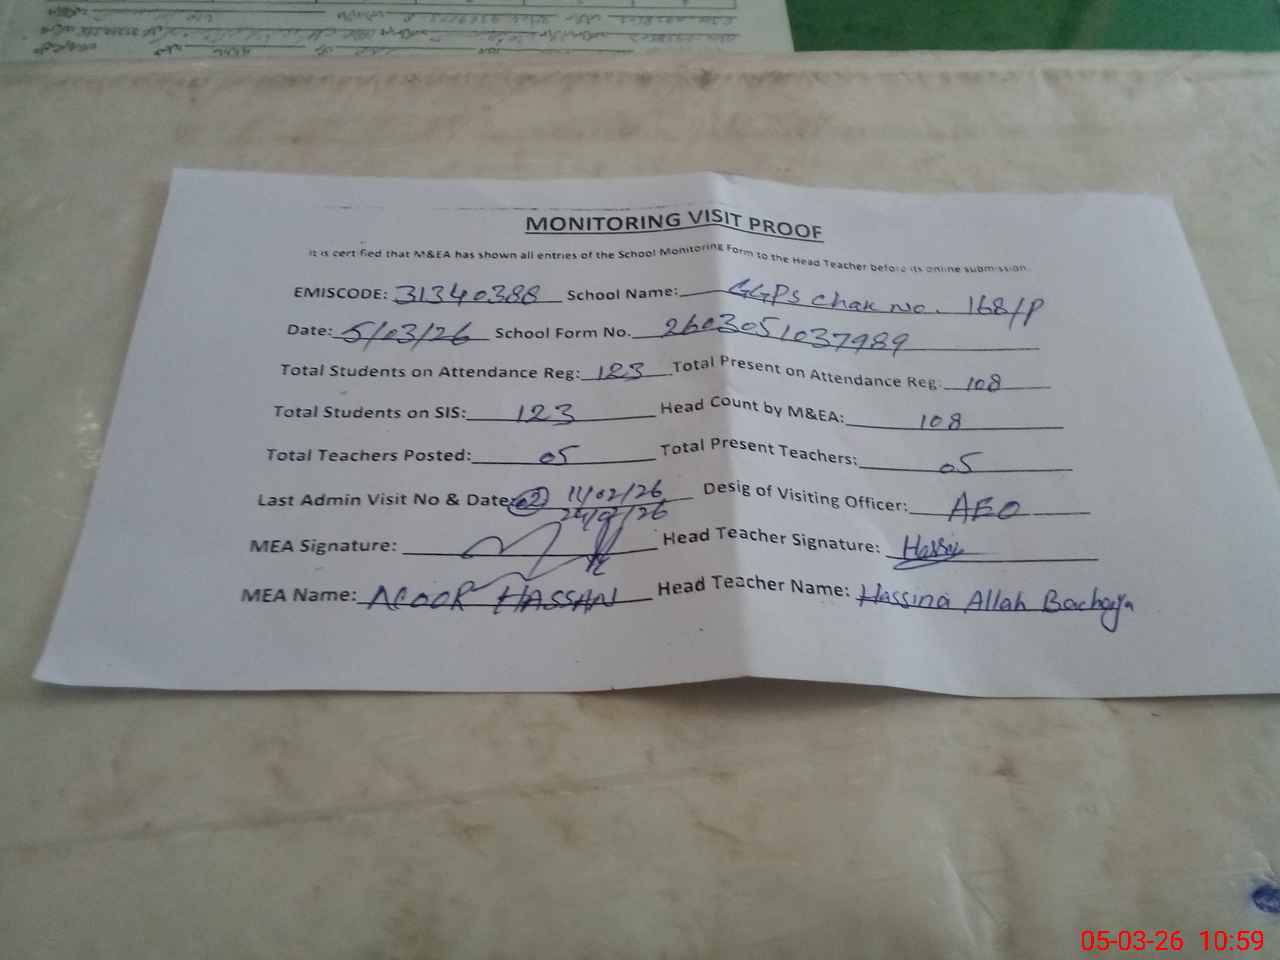 MONITORING VISIT PROOF
It is certified that M&EA has shown all entries of the School Monitoring Form to the Head Teacher before its online submission.
EMISCODE: 31340388 School Name: GGPS Chak no. 168/P
Date: 5/03/26 School Form No. 2603051037989
Total Students on Attendance Reg: 123 Total Present on Attendance Reg: 108
Total Students on SIS: 123 Head Count by M&EA: 108
Total Teachers Posted: 05 Total Present Teachers: 05
Last Admin Visit No & Date: 02 11/02/26 Desig of Visiting Officer: AEO
MEA Signature: Head Teacher Signature: Hassina
MEA Name: NOOR HASSAN Head Teacher Name: Hassina Allah Bachaya
05-03-26 10:59